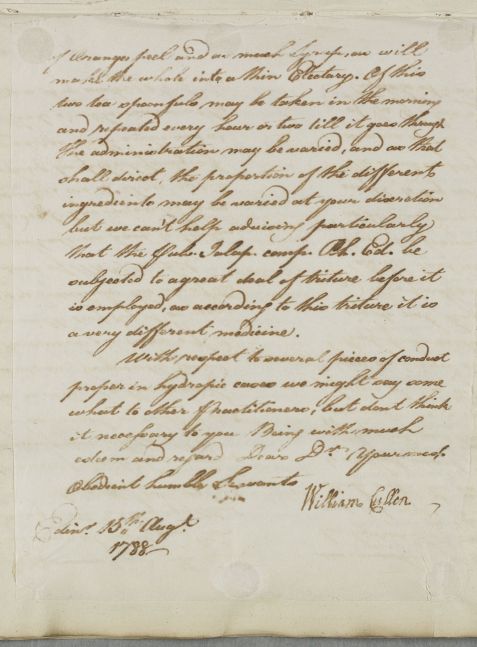 of Oranges peel and as much Syrup, as will
make the whole into a thin Electary. Of this
two tea spoonfuls may be taken in the morning
and repeated every hour or two till it goes through
The administration may be varied, and as that
shall direct, the proportion of the different
ingredients may be varied at your discretion
but we can't help advising particularly
that the Pulv. Jalap. comp. Ph. Ed. be
subjected to a great deal of triture before it
is employed, as according to this triture it is
a very different medicine.
With respect to several pieces of conduct
proper in hydropic cases we might say some
what to other Practitioners, but dont think
it necessary to you Being with much
esteem and regard Dear Dr. Your most
Obedient humble Servants
William Cullen
Edinr. 15th Augt.
1788